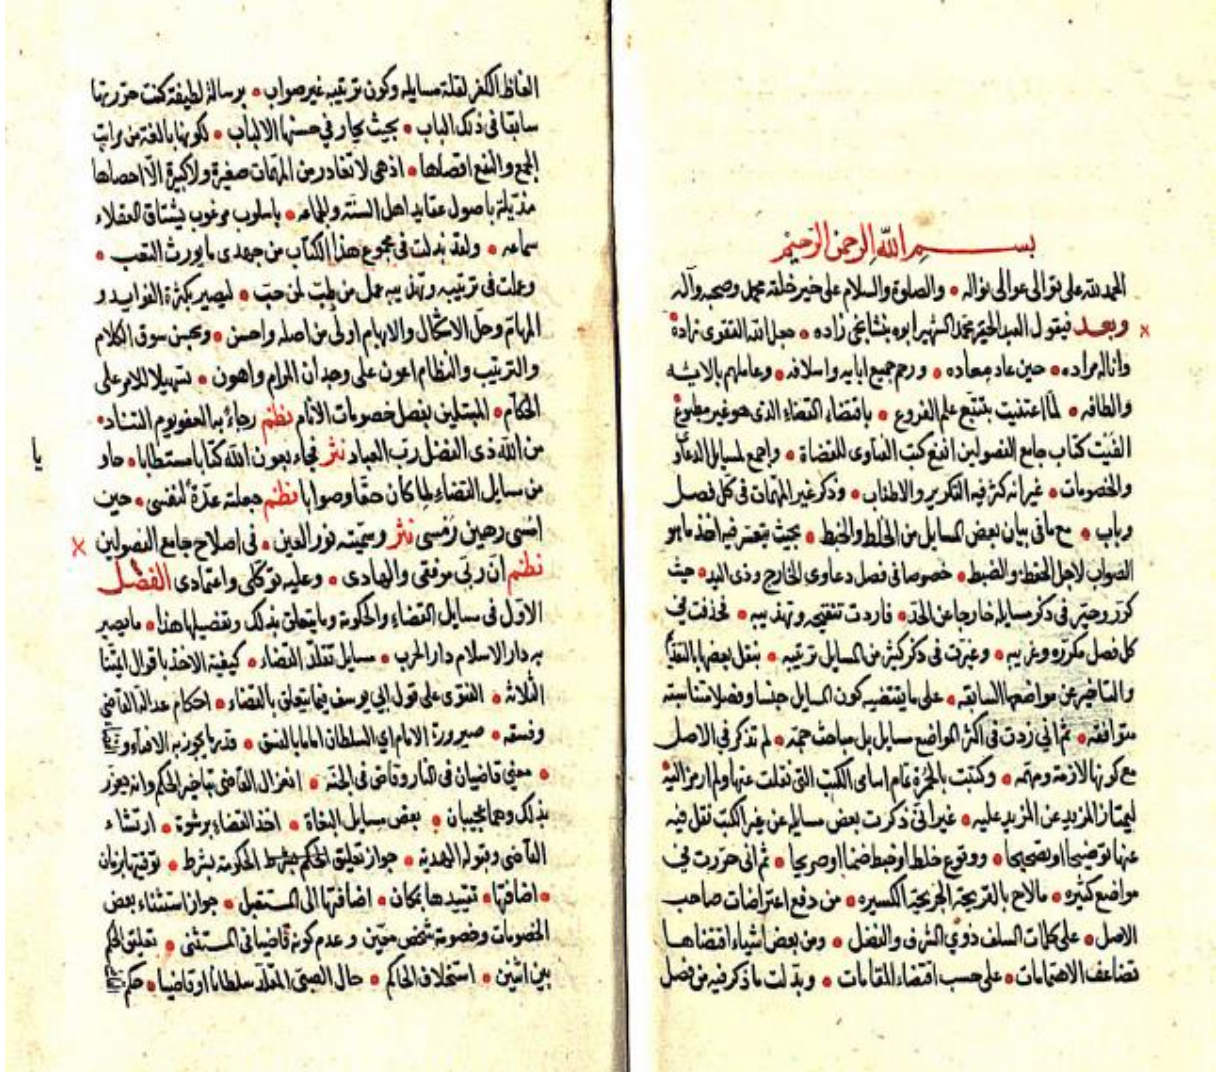 بسم الله الرحمن الرحيم
الحمد لله على توالى عوالى نواله • والصلوة والسلام على خير خلقه محمد وصحبه وآله
وبعد فيقول العبد الحقير محمد الشهير ابوه بنشانجى زاده • جعل الله التقوى زاده
وأناله مراده • حين عاد معاده • ورحم جميع ابايه واسلافه • وعاملهم بالايه
والطافه • لما اعتنيت بتتبع علم الفروع • باقتضاء القضاء الذى هو غير مطبوع
الفيت كتاب جامع الفصولين انفع كتب الفتاوى للقضاة • واجمع لمسايل الدعاوى
والخصومات • غير انه كثر فيه التكرير والاطناب • وذكر غير المهمات فى كل فصل
وباب • مع ما فى بيان بعض المسايل من الخلط والخبط • بحيث يتعسر فيه اخذ ما هو
الصواب لاجل الحفظ والضبط • خصوصا فى فصل دعاوى الخارج وذى اليد • حيث
كرر وحير فى ذكر مسايله خارجا عن الحد • فاردت تنقيحه وتهذيبه • فحذفت فى
كل فصل مكرره وغريبه • وغيرت فى ذكر كثير من المسايل ترتيبه • بنقل بعضها بالتقديم
والتاخير عن مواضعها السابقه • على ما يقتضيه كون المسايل جنسا وفصلا متناسبة
متوافقه • ثم انى زدت فى اكثر المواضع مسايل بل مباحث جمه • لم تذكر فى الاصل
مع كونها لازمة ومهمه • وكتبت بالحمرة تمام اسامى الكتب التى نقلت عنها ولم ارمز اليه
ليمتاز المزيد عن المزيد عليه • غير انى ذكرت بعض مسايل عن غير الكتب نقل فيه
عنها توضيحا او تصحيحا • ووقوع خلط او خبط ضمنا او صريحا • ثم انى حررت فى
مواضع كثيره • ما لاح بالقريحة الجريحة الكسيره • من دفع اعتراضات صاحب
الاصل • على كلمات السلف ذوى الشرف والفضل • ومن بعض اشياء اقتضاها
تضاعف الاهتمامات • على حسب اقتضاء المقامات • وبدلت ما ذكر فيه من فصل
الفاظ الكفر لقلة مسايله وكون ترتيبه غير صواب • برسالة لطيفة كنت حررتها
سابقا فى ذلك الباب • بحيث يحار فى حسنها الالباب • لكونها بالغة من مراتب
الجمع والنفع اقصاها • اذ هى لا تغادر من المهمات صغيرة ولا كبيرة الا احصاها
مذيلة باصول عقايد اهل السنة والجماعه • باسلوب مرغوب يشتاق العقلاء
سماعه • ولقد بذلت فى مجموع هذا الكتاب من جهدى ما يورث التعب •
وعملت فى ترتيبه وتهذيبه عمل من طب لمن حب • ليصير بكثرة الفوايد و
المهام وحل الاشكال والابهام اولى من اصله واحسن • وبحسن سوق الكلام
والترتيب والنظام اعون على وجدان المرام واهون • تسهيلا للامر على
الحكام • المبتلين بفصل خصومات الأنام نظم رجاء به العفو يوم التناد •
من الله ذى الفضل رب العباد نثر فجاء بعون الله كتابا مستطابا • حاو
يا
من مسايل القضاء لما كان حقا وصوابا نظم جعلته عدة لنفسى • حين
امسى رهين رمسى نثر وسميته نور العين • فى اصلاح جامع الفصولين
نظم ان ربى موفقى والهادى • وعليه توكلى واعتمادى الفصل
الاول فى مسايل القضاء والحكومة وما يتعلق بذلك وتفصيلها هذا • ما يصير
به دار الاسلام دار الحرب • مسايل تقلد القضاء • كيفية الاخذ باقوال ايمتنا
الثلاثة • الفتوى على قول ابى يوسف فيما يتعلق بالقضاء • احكام عدالة القاضى
وفسقه • صيرورة الامام اى السلطان اماما بالفسق • قدر ما يجوز به الافتاء و
• معنى قاضيان فى النار وقاض فى الجنة • انعزال القاضى بتاخير الحكم وانه يعزر
بذلك وهما عجيبان • بعض مسايل البغاة • اخذ القضاء برشوة • ارتشاء
القاضى وقبوله الهدية • جواز تعليق الحكم بشرط الحكومة بشرط • توقيتها بزمان
• اضافتها • تقييدها بمكان • اضافتها الى المستقبل • جواز استثناء بعض
الخصومات وخصومة شخص معين وعدم كونه قاضيا فى المستثنى • تعليق الحكم
بين اثنين • استخلاف الحاكم • حال الصبى المقلد سلطانا او قاضيا • حكم